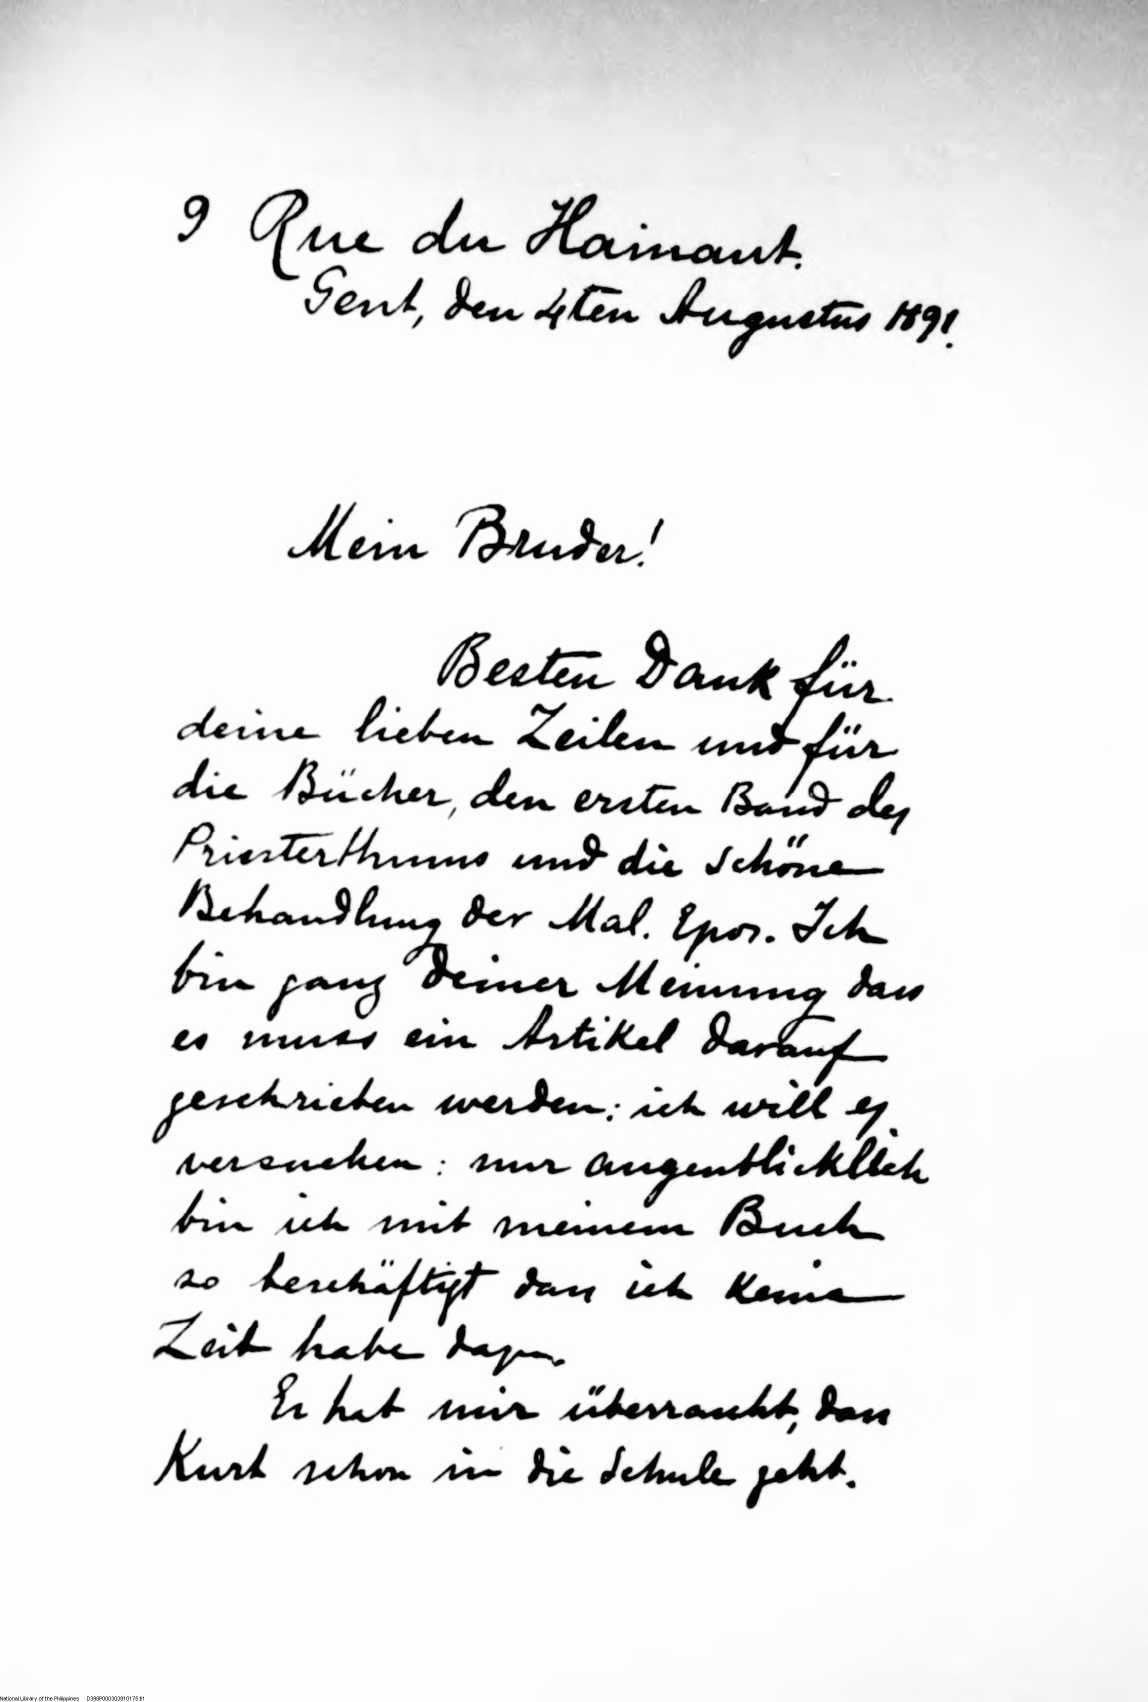 9 Rue du Hainaut.
Gent, den 4ten Augustus 1891.
Mein Bruder!
Besten Dank für
deine lieben Zeilen und für
die Bücher, den ersten Band des
Priesterthums und die schöne
Behandlung der Mal. Epos. Ich
bin ganz deiner Meinung dass
es muss ein Artikel darauf
geschrieben werden: ich will es
versuchen: nur augenblicklich
bin ich mit meinem Buch
so beschäftigt dass ich keine
Zeit habe dazu.
Es hat mir überrascht, dass
Kurt schon in die Schule geht.
National Library of the Philippines D398P000303910175.tif